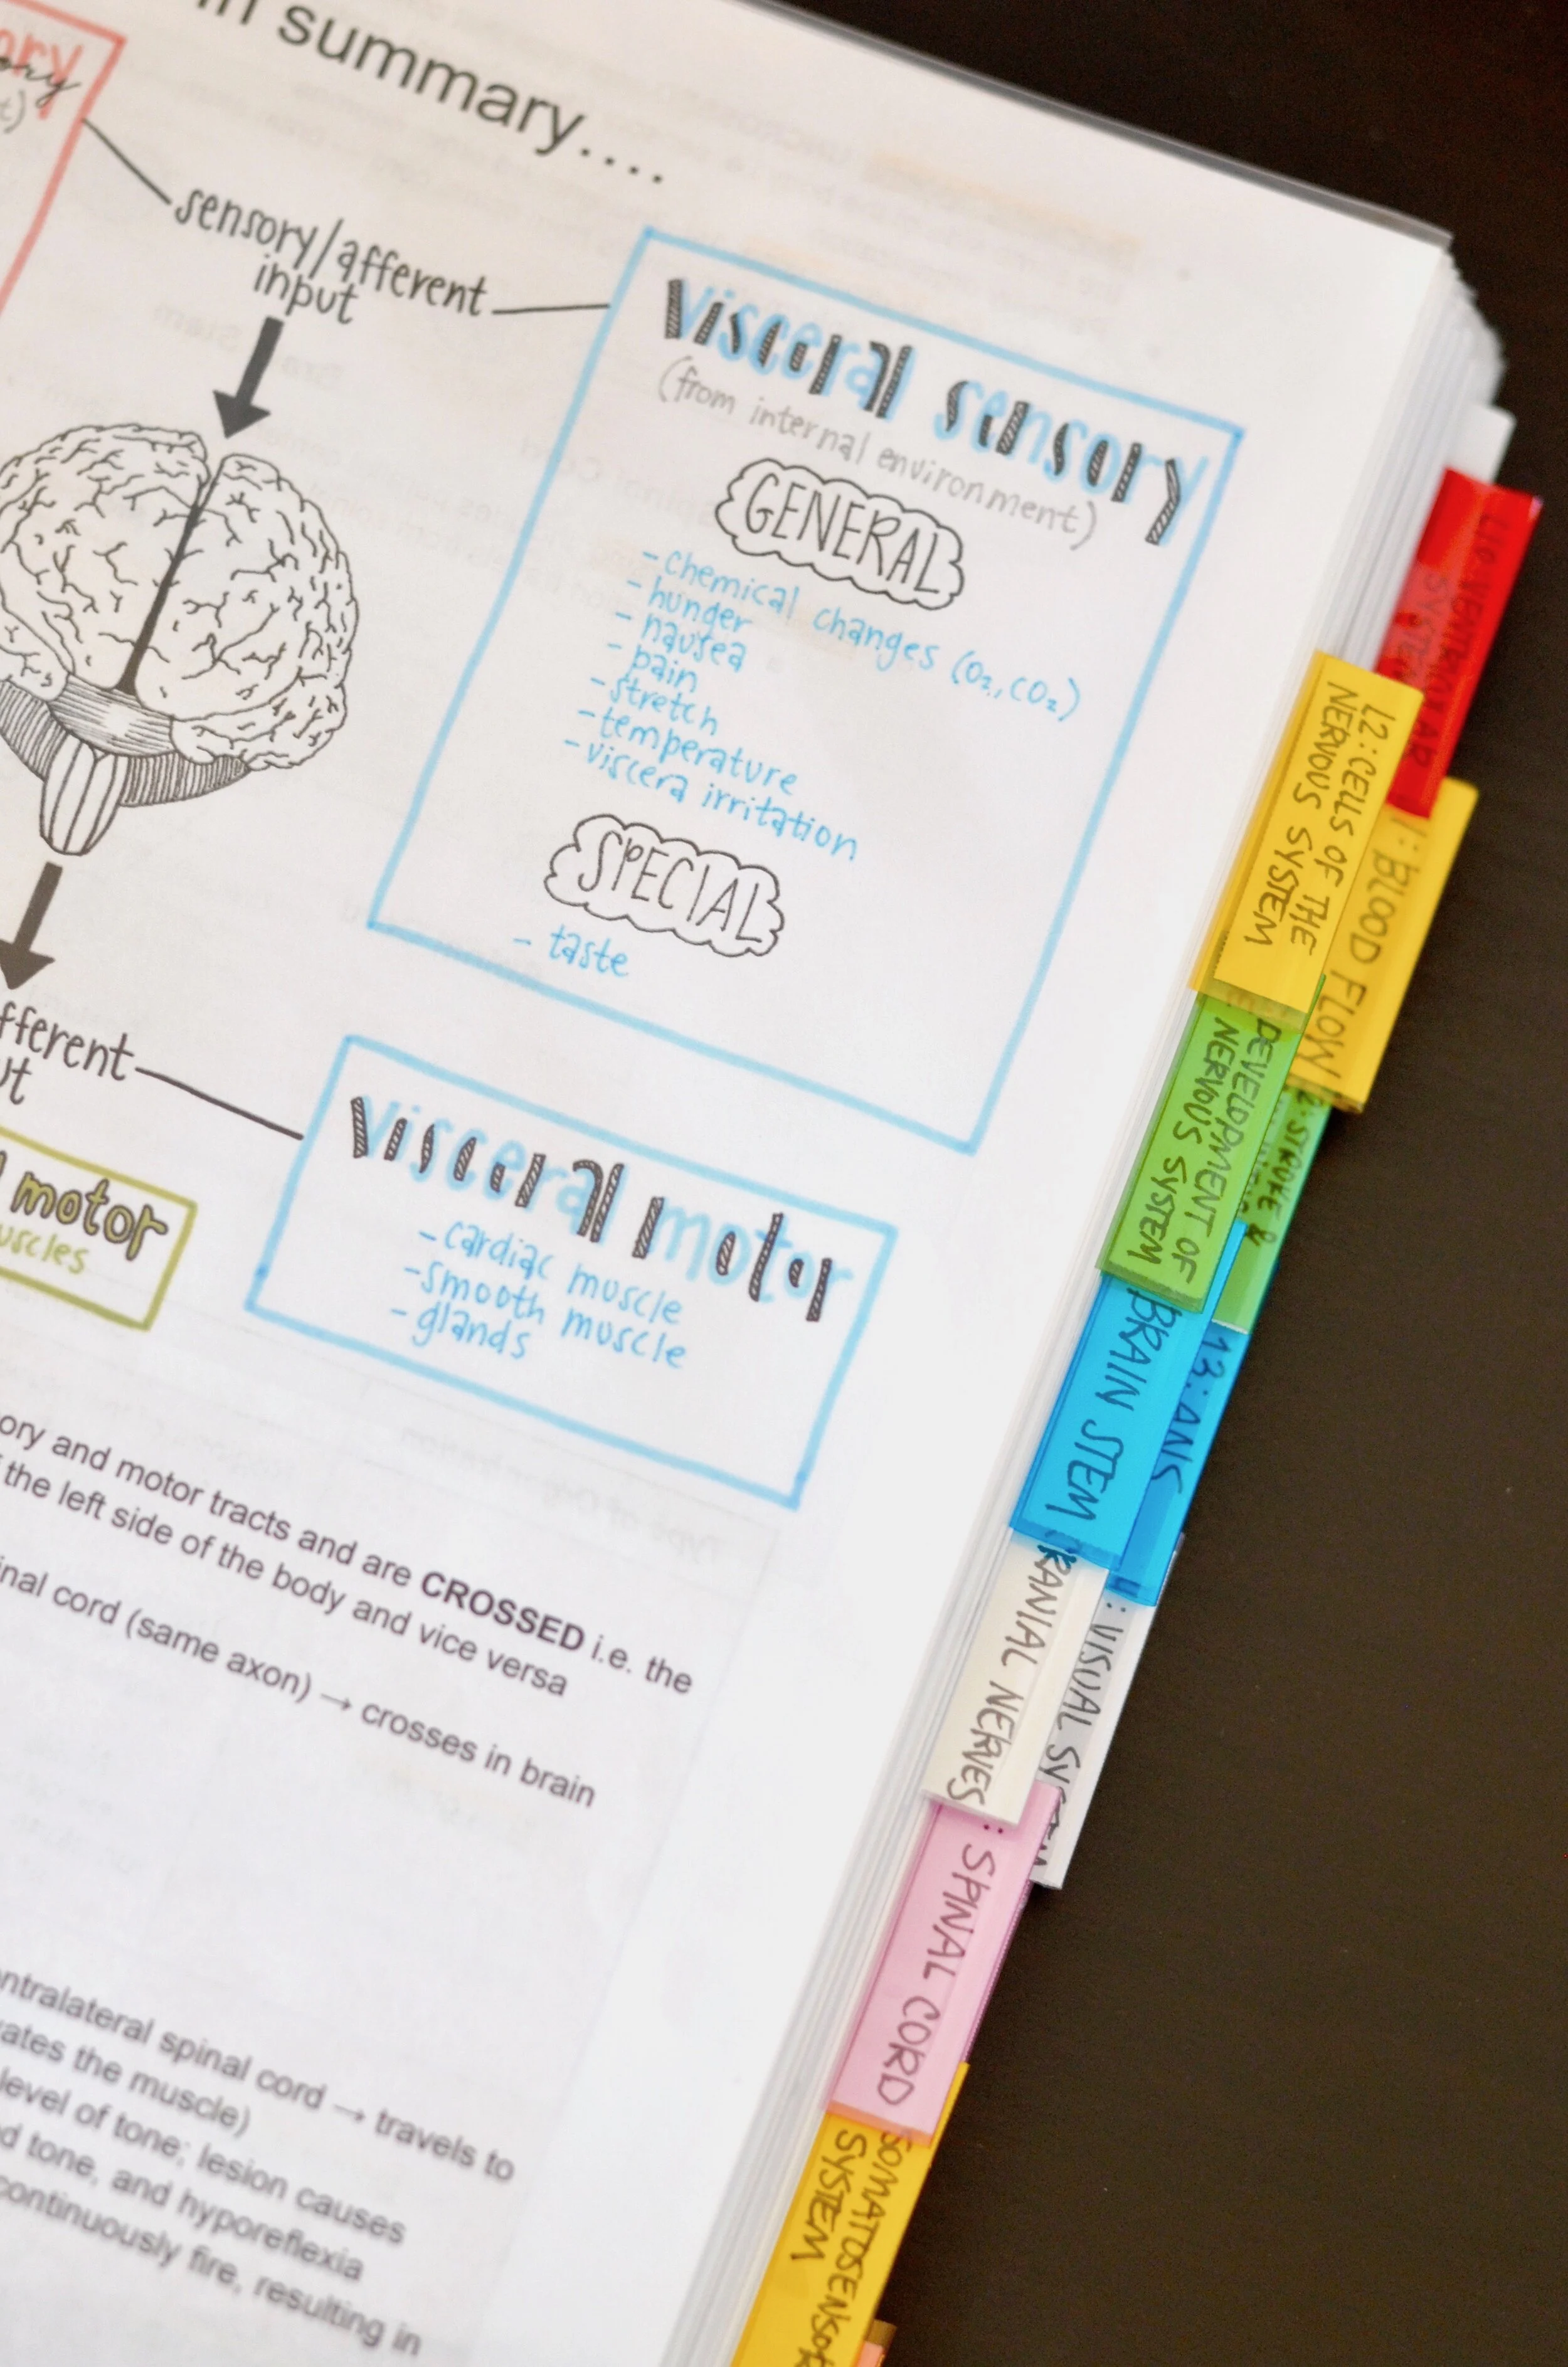 in summary....
sensory/afferent
input
visceral sensory
(from internal environment)
GENERAL
- chemical changes (O₂, CO₂)
- hunger
- nausea
- pain
- stretch
- temperature
- viscera irritation
SPECIAL
- taste
visceral motor
- cardiac muscle
- smooth muscle
- glands
motor
and motor tracts and are CROSSED i.e. the
the left side of the body and vice versa
cord (same axon) → crosses in brain
spinal cord → travels to
the muscle)
level of tone; lesion causes
tone, and hyporeflexia
continuously fire, resulting in
L10: VENTRICULAR
SYSTEM
L2: CELLS OF THE
NERVOUS SYSTEM
BLOOD FLOW
DEVELOPMENT OF
NERVOUS SYSTEM
STROKE &
BRAIN STEM
13: ANS
NERVES
: VISUAL SYSTEM
: SPINAL CORD
SYSTEM